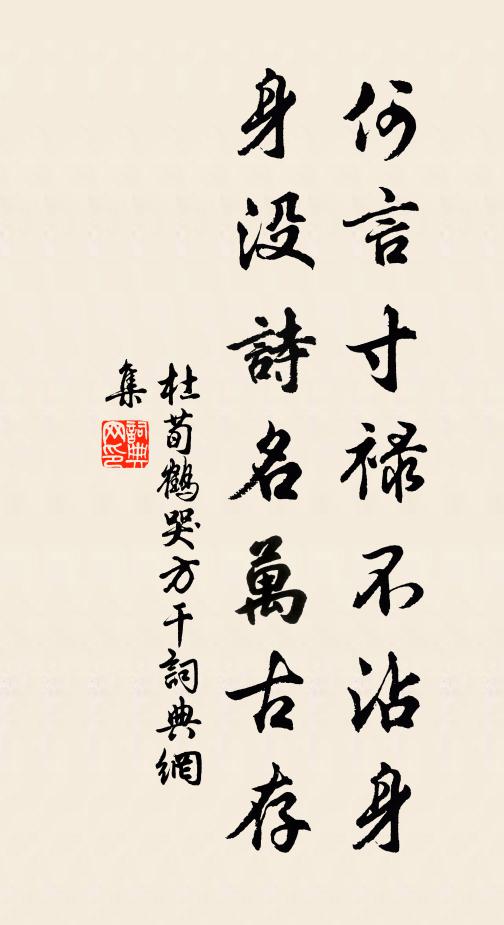 何言寸祿不沾身
身没詩名萬古存
杜荀鶴哭方干詞典網
集
詞典
网印